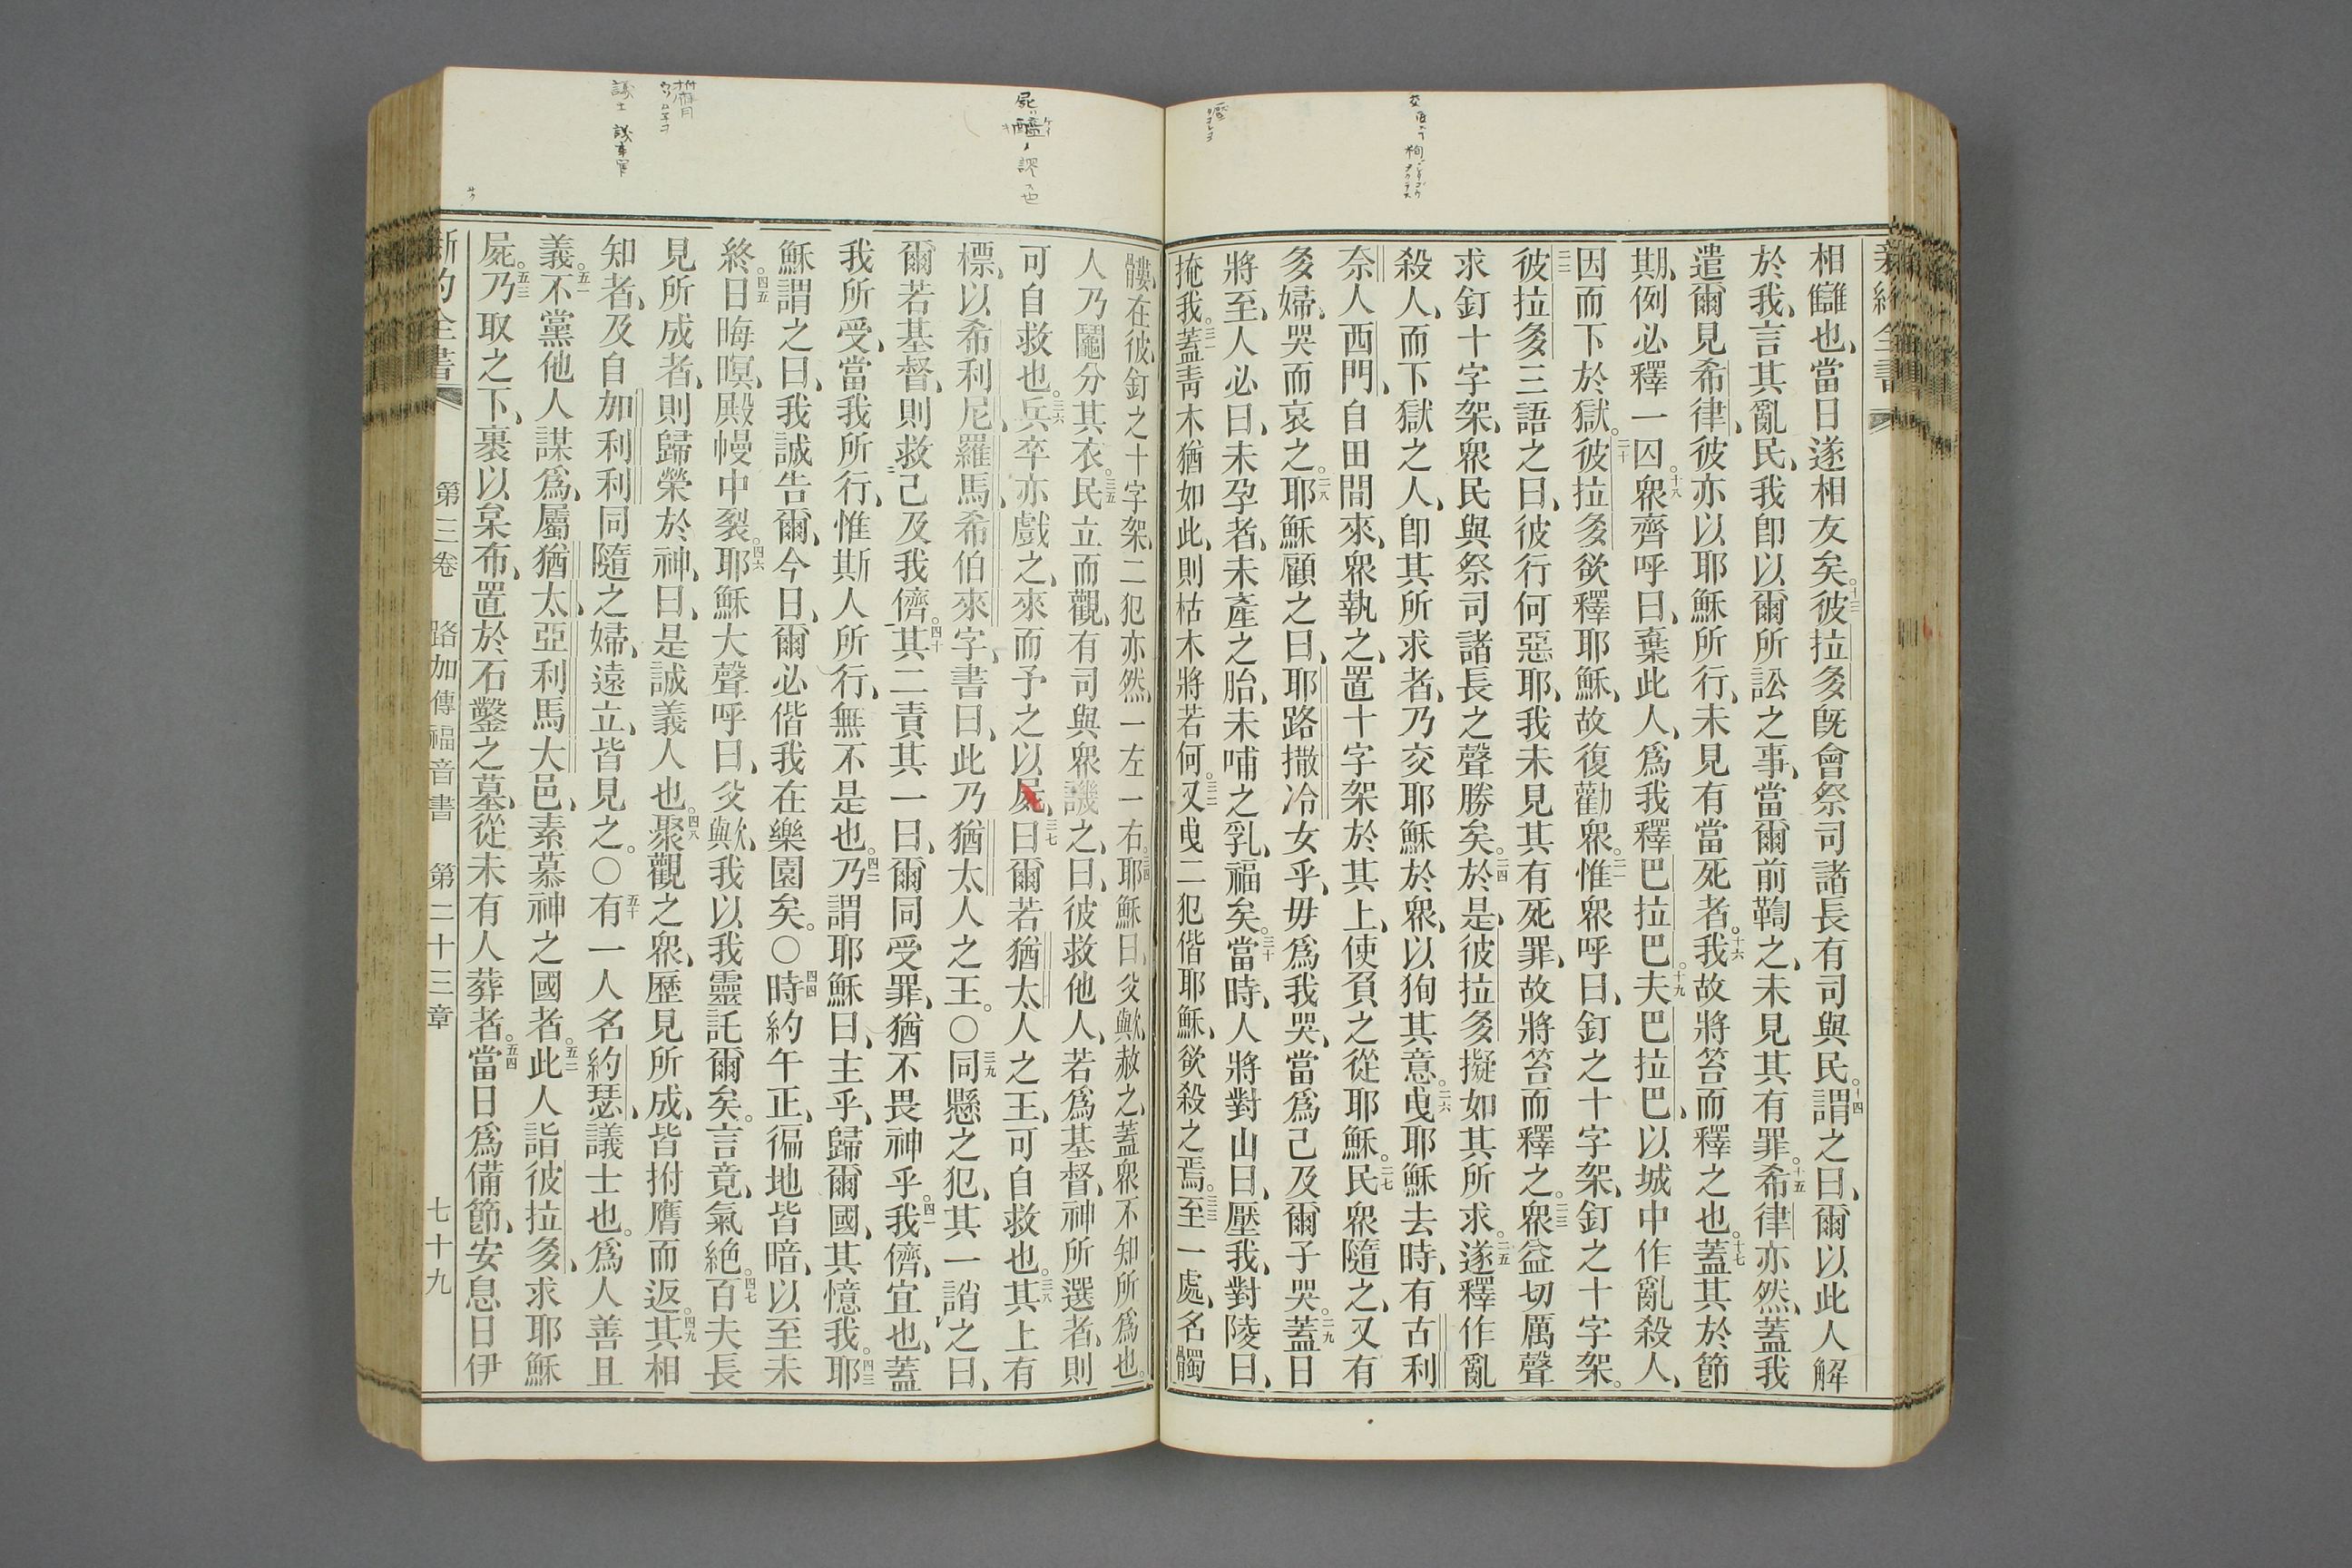 相讎也、當日遂相友矣。十三彼拉多旣會祭司諸長有司與民。十四謂之曰、爾以此人解
於我、言其亂民、我卽以爾所訟之事、當爾前鞫之、未見其有罪。十五希律亦然、蓋我
遣爾見希律、彼亦以耶穌所行、未見有當死者。十六我故將笞而釋之也。十七蓋其於節
期、例必釋一囚。十八衆齊呼曰、棄此人、爲我釋巴拉巴。十九夫巴拉巴、以城中作亂殺人、
因而下於獄。二十彼拉多欲釋耶穌、故復勸衆。二一惟衆呼曰、釘之十字架、釘之十字架。
二二彼拉多三語之曰、彼行何惡耶、我未見其有死罪、故將笞而釋之。二三衆益切厲聲
求釘十字架、衆民與祭司諸長之聲勝矣。二四於是、彼拉多擬如其所求。二五遂釋作亂
殺人、而下獄之人、卽其所求者、乃交耶穌於衆、以狥其意。二六曳耶穌去時、有古利
奈人西門、自田間來、衆執之、置十字架於其上、使負之從耶穌。二七民衆隨之、又有
多婦、哭而哀之。二八耶穌顧之曰、耶路撒冷女乎、毋爲我哭、當爲己及爾子哭。二九蓋日
將至、人必曰、未孕者、未產之胎、未哺之乳、福矣。三十當時、人將對山曰、壓我、對陵曰、
掩我。三一蓋靑木猶如此、則枯木將若何。三二又曳二犯偕耶穌、欲殺之焉。三三至一處、名髑
髏、在彼、釘之十字架、二犯亦然、一左一右。三四耶穌曰、父歟、赦之、蓋衆不知所爲也。
人乃鬮分其衣。三五民立而觀、有司與衆譏之、曰、彼救他人、若爲基督、神所選者、則
可自救也。三六兵卒亦戲之、來而予之以醯、三七曰爾若猶太人之王、可自救也。三八其上有
標、以希利尼、羅馬、希伯來字、書曰、此乃猶太人之王。〇三九同懸之犯、其一誚之曰、
爾若基督、則救己及我儕。四十其二責其一曰、爾同受罪、猶不畏神乎。四一我儕、宜也、蓋
我所受、當我所行、惟斯人所行、無不是也。四二乃謂耶穌曰、主乎、歸爾國、其憶我。四三耶
穌謂之曰、我誠告爾、今日、爾必偕我在樂園矣。〇四四時約午正、徧地皆暗、以至未
終。四五日晦暝、殿幔中裂。四六耶穌大聲呼曰、父歟、我以我靈託爾矣。言竟、氣絶。四七百夫長
見所成者、則歸榮於神、曰、是誠義人也。四八聚觀之衆、歷見所成、皆拊膺而返。四九其相
知者、及自加利利同隨之婦、遠立、皆見之。〇五十有一人名約瑟、議士也。爲人善且
義。五一不黨他人謀爲、屬猶太、亞利馬大邑、素慕神之國者。五二此人詣彼拉多、求耶穌
屍。五三乃取之下、裹以枲布、置於石鑿之墓、從未有人葬者。五四當日爲備節、安息日伊
新約全書 第三卷 路加傳福音書 第二十三章 七十九